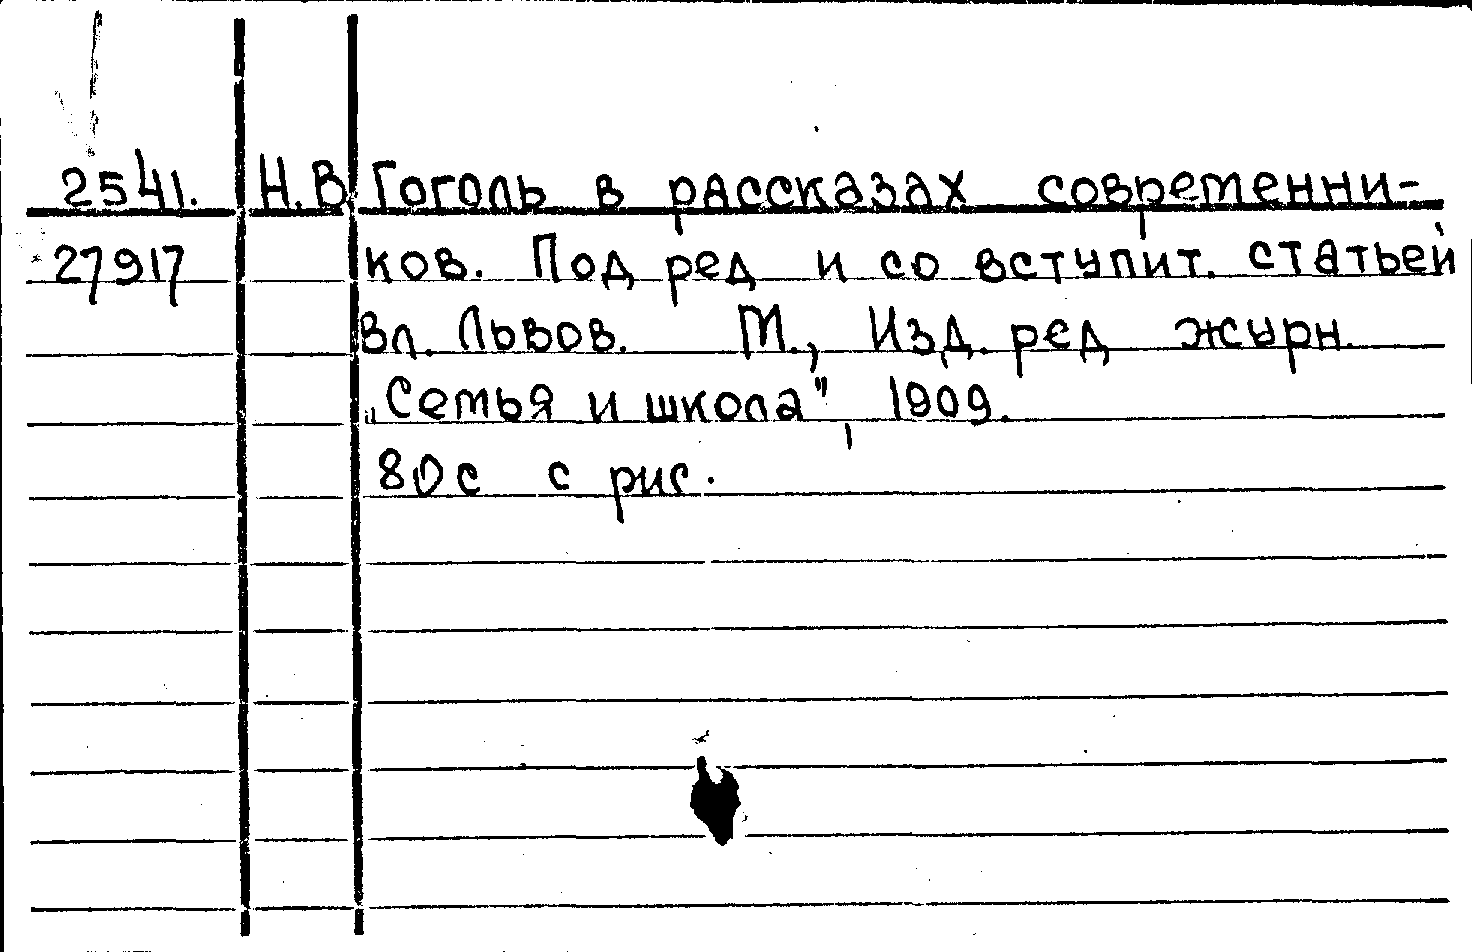 2541. Н.В Гоголь в рассказах современни-
27917 ков. Под ред и со вступит. статьей
Вл. Львов. М., Изд. ред журн.
„Семья и школа", 1909.
80с с рис.